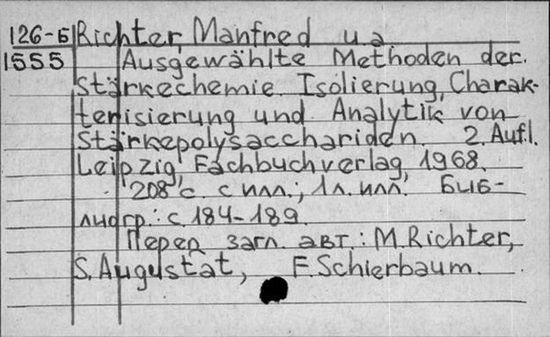 126-Б Richter, Manfred u a
1555 Ausgewählte Methoden der
Stärkechemie. Isolierung, Charak-
terisierung und Analytik von
Stärkepolysacchariden. 2. Aufl.
Leipzig, Fachbuchverlag, 1968.
208 с. с илл.; 1 л. илл. Биб-
лиогр.: с. 184-189.
Перед загл. авт.: M. Richter,
S. Augustat, F. Schierbaum.